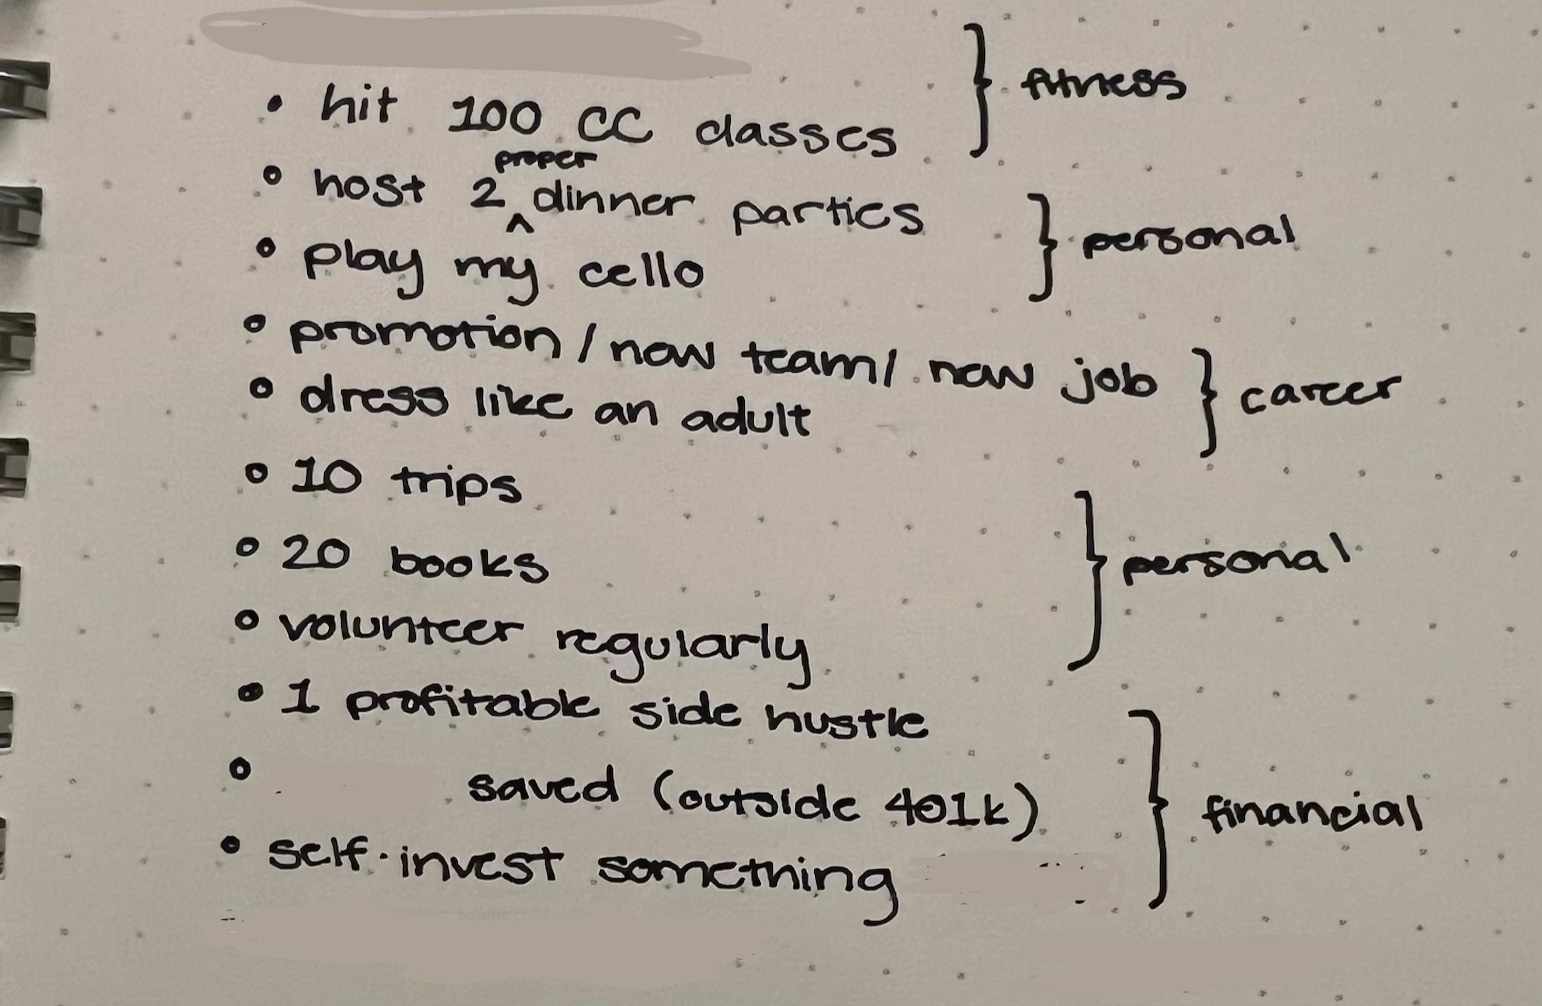 • hit 100 CC classes } fitness
• host 2 ^ proper dinner parties
• play my cello } personal
• promotion / new team / new job
• dress like an adult } career
• 10 trips
• 20 books } personal
• volunteer regularly
• 1 profitable side hustle
• saved (outside 401k) } financial
• self-invest something